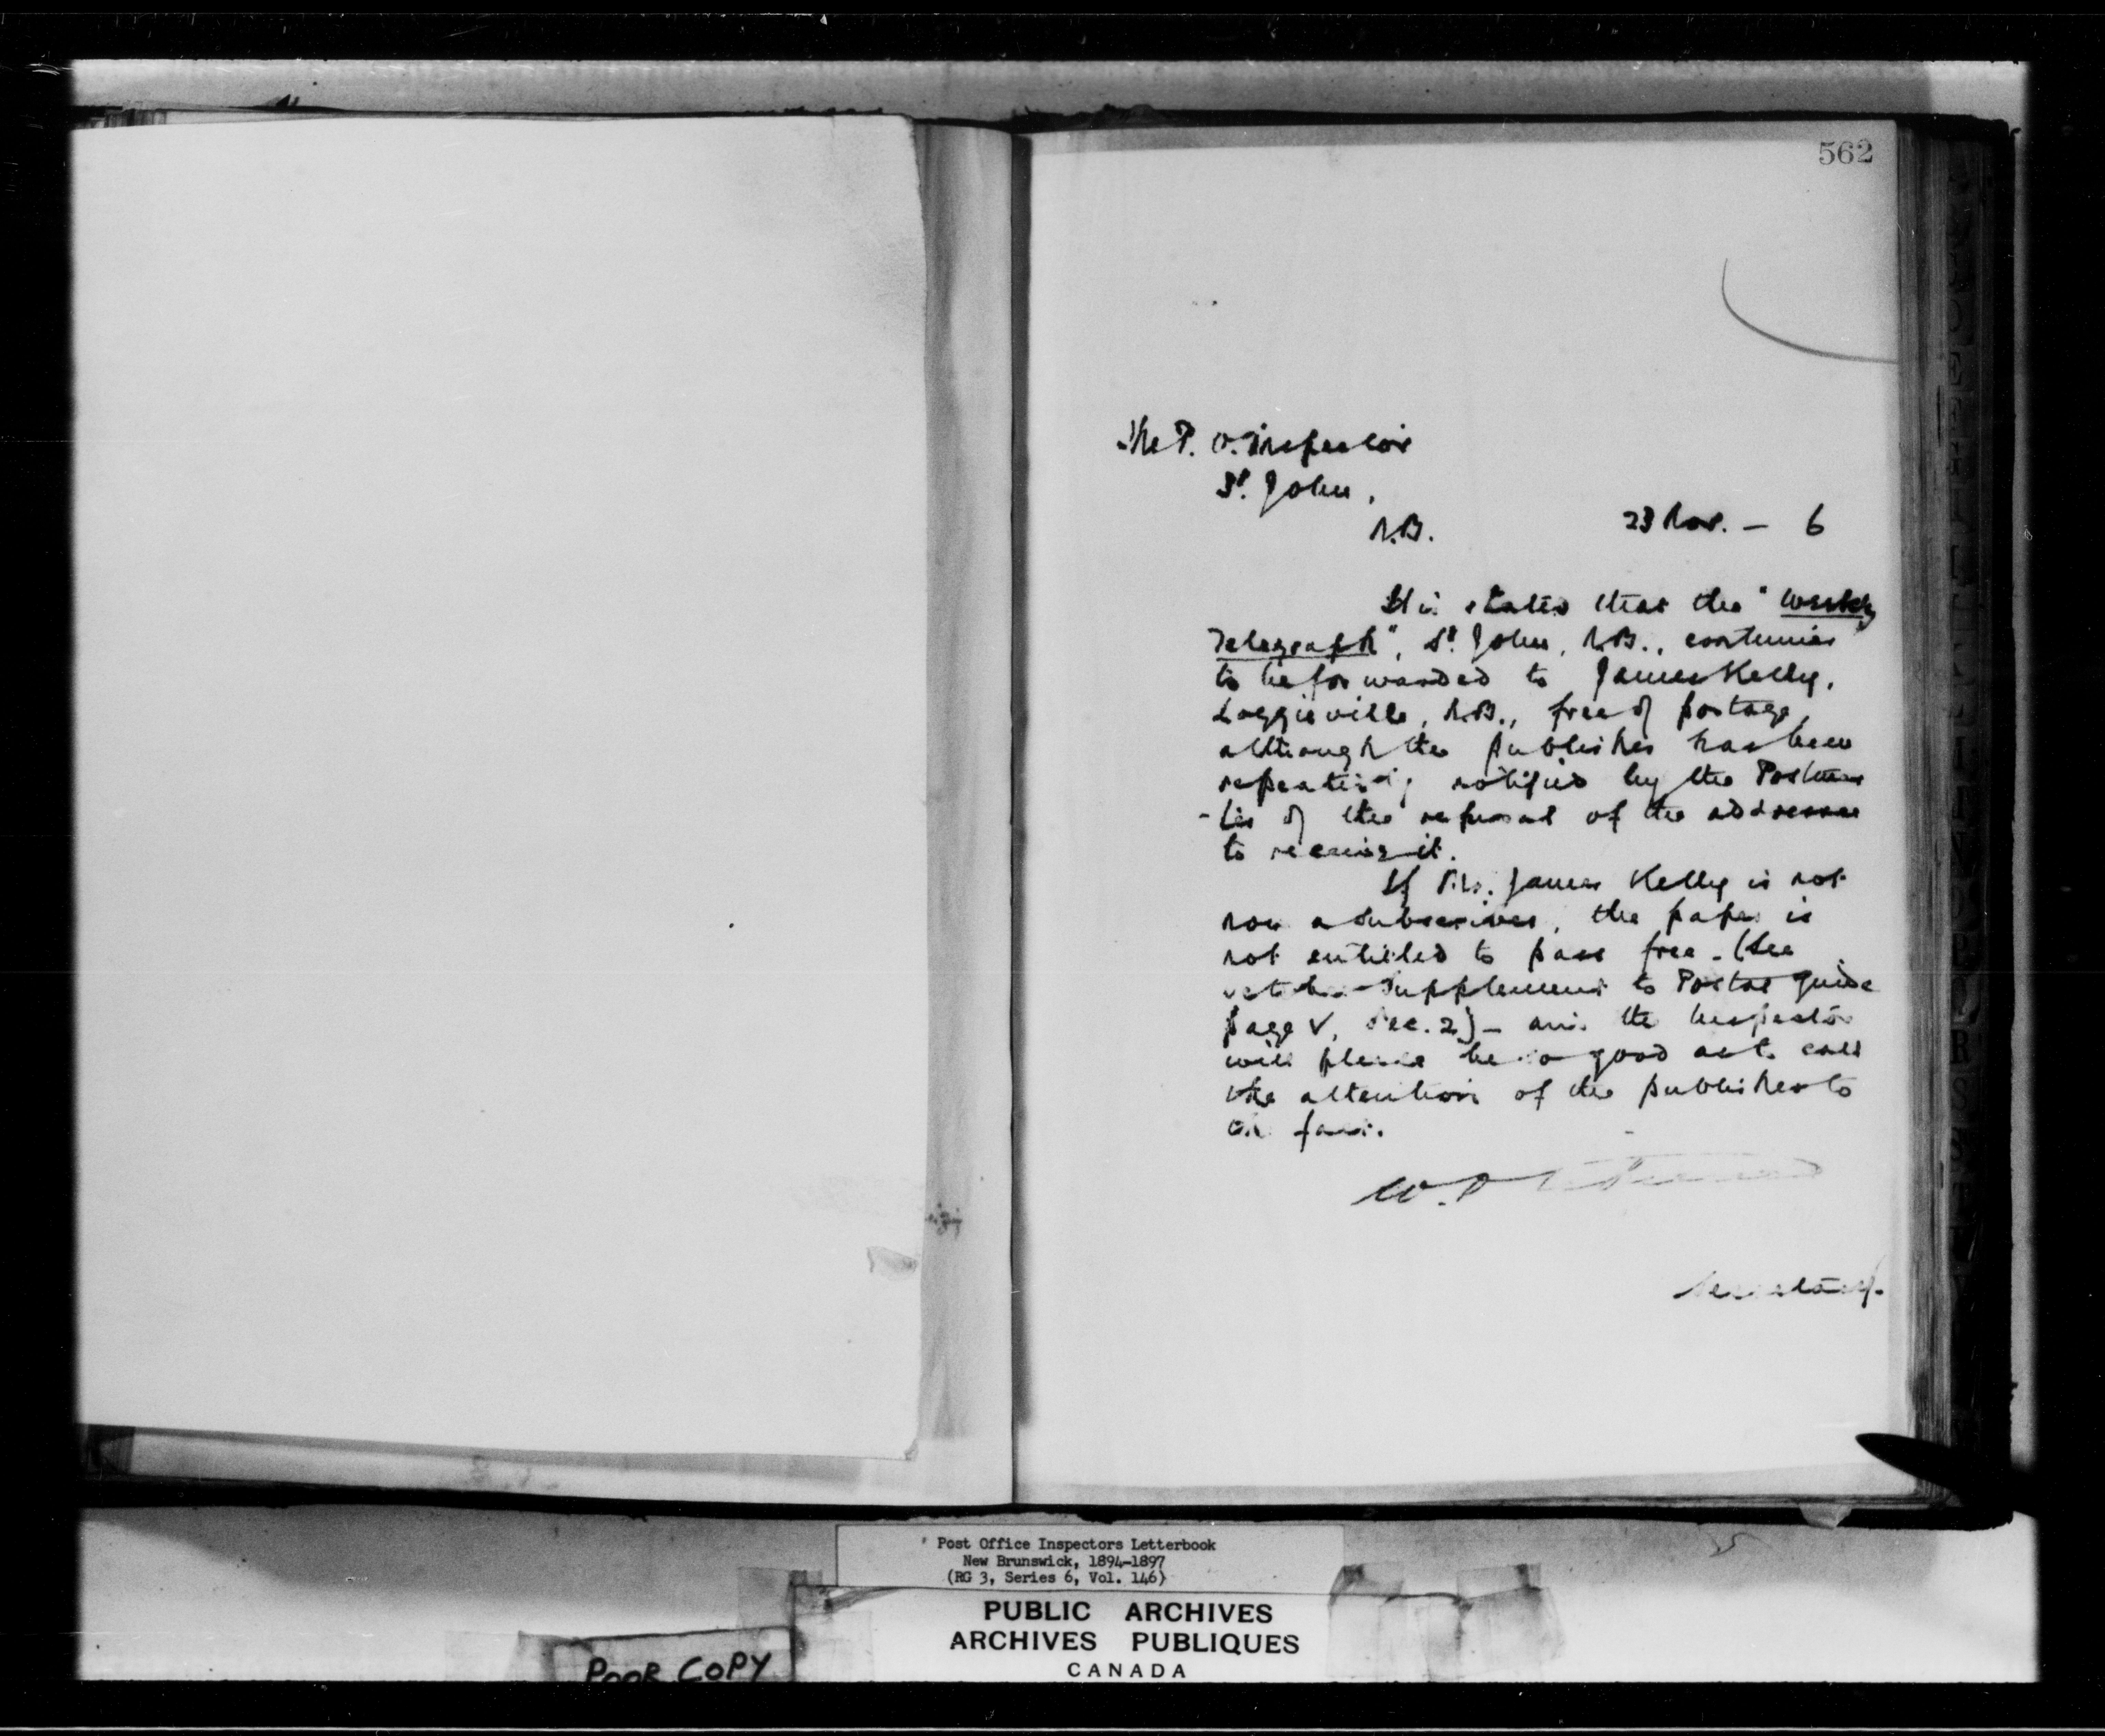 562
The P. O. Inspector
St. John,
N.B. 23 Nov. — 6
It is stated that the "Weekly
Telegraph", St. John, N.B., continues
to be forwarded to James Kelly,
Loggieville, N.B., free of postage,
although the publisher has been
repeatedly notified by the Postmas
-ter of the refusal of the addressee
to receive it.
If Mr. James Kelly is not
now a subscriber, the paper is
not entitled to pass free - (See
October Supplement to Postal Guide
page V, Sec. 2) - and the Inspector
will please be so good as to call
the attention of the publisher to
the fact.
W.
Secretary.
Post Office Inspectors Letterbook
New Brunswick, 1894-1897
(RG 3, Series 6, Vol. 146)
PUBLIC ARCHIVES
ARCHIVES PUBLIQUES
CANADA
POOR COPY